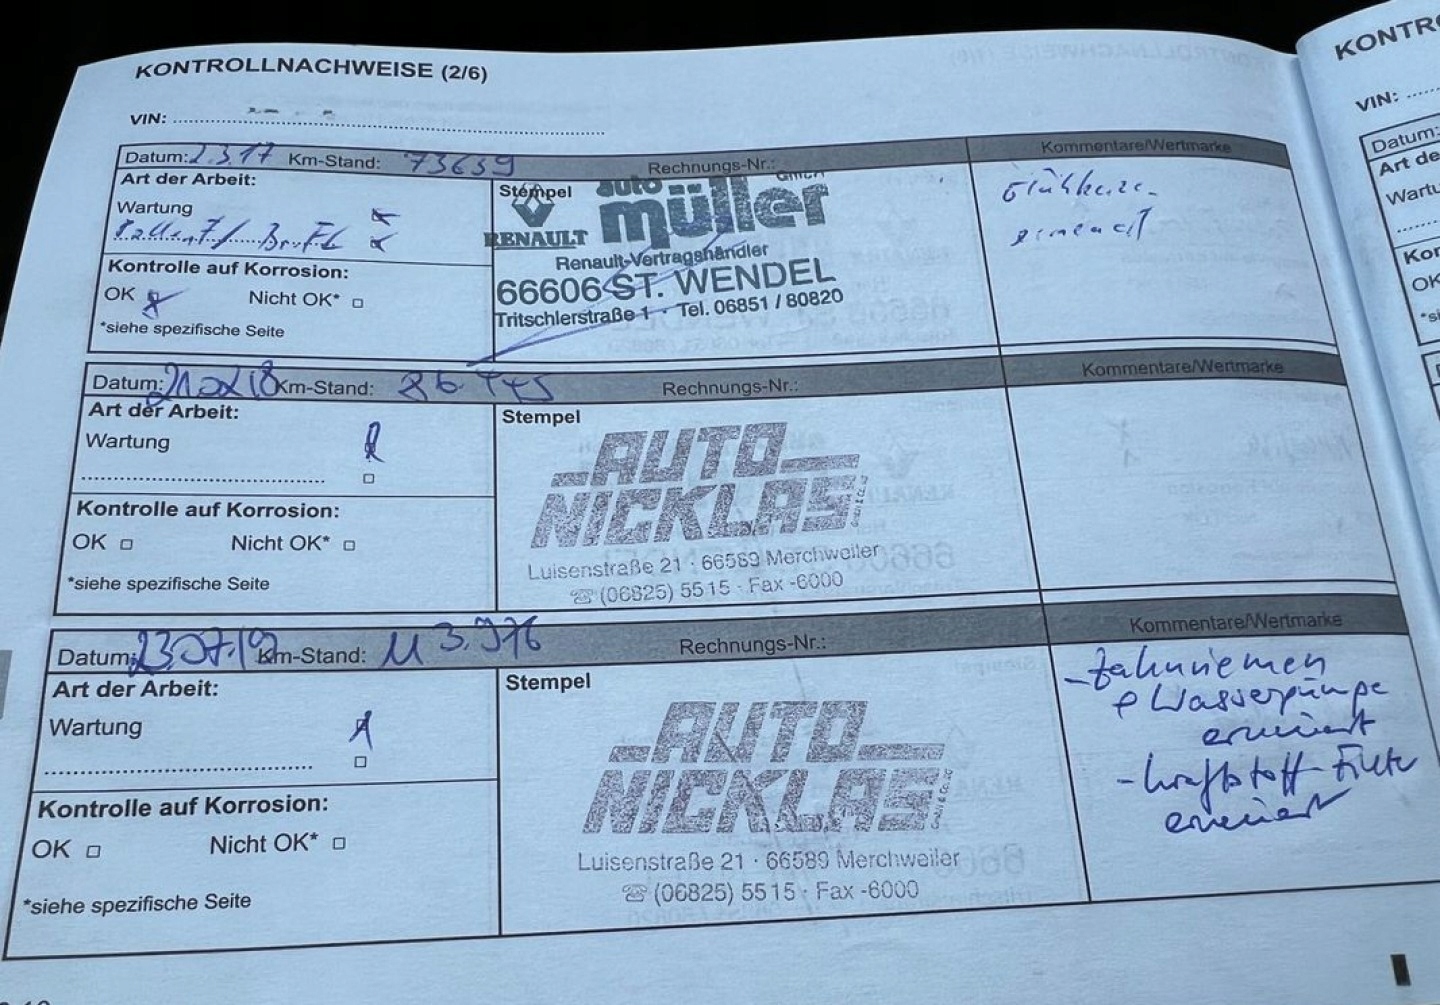 KONTROLLNACHWEISE (2/6)
VIN:
Datum: 2.3.17 Km-Stand: 73639 Rechnungs-Nr.: Kommentare/Wertmarke
Art der Arbeit:
Wartung
Kontrolle auf Korrosion:
OK Nicht OK*
*siehe spezifische Seite
Stempel
auto GmbH
müller
RENAULT
Renault-Vertragshändler
66606 ST. WENDEL
Tritschlerstraße 1 · Tel. 06851 / 80820
Datum: Km-Stand: Rechnungs-Nr.: Kommentare/Wertmarke
Art der Arbeit:
Wartung
Kontrolle auf Korrosion:
OK Nicht OK*
*siehe spezifische Seite
Stempel
AUTO
NICKLAS
Luisenstraße 21 · 66589 Merchweiler
☏ (06825) 5515 · Fax -6000
Datum: 23.07.19 Km-Stand: 113.976 Rechnungs-Nr.: Kommentare/Wertmarke
Art der Arbeit:
Wartung
Kontrolle auf Korrosion:
OK Nicht OK*
*siehe spezifische Seite
Stempel
AUTO
NICKLAS
Luisenstraße 21 · 66589 Merchweiler
☏ (06825) 5515 · Fax -6000
- Zahnriemen
Wasserpumpe
erneuert
- Kraftstoff-Filter
erneuert
KONTR
VIN:
Datum: